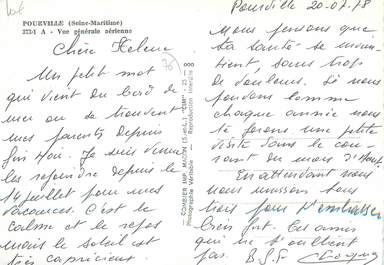 POURVILLE (Seine-Maritime)
373-1 A - Vue générale aérienne
Chère Hélène
Un petit mot
qui vient du bord de
mer ou se trouvent
mes parents depuis
fin Mai. Je suis venue
les rejoindre depuis le
14 juillet pour mes
vacances. C'est le
calme et le repos
mais le soleil est
très capricieux.
COMBIER IMP. MACON (S.-et-L.) "CIM"
Photographie Véritable - Reproduction Interdite
Pourville 20-07-78
Nous pensons que
ta santé se main-
tient, sans trop
de douleurs. Si nous
pouvons comme
chaque année nous
te ferons une petite
visite dans le cou-
rant du mois d'Août.
En attendant nous
nous unissons tous
trois pour t'embrasser
bien fort. Tes amis
qui ne t'oublient
pas.